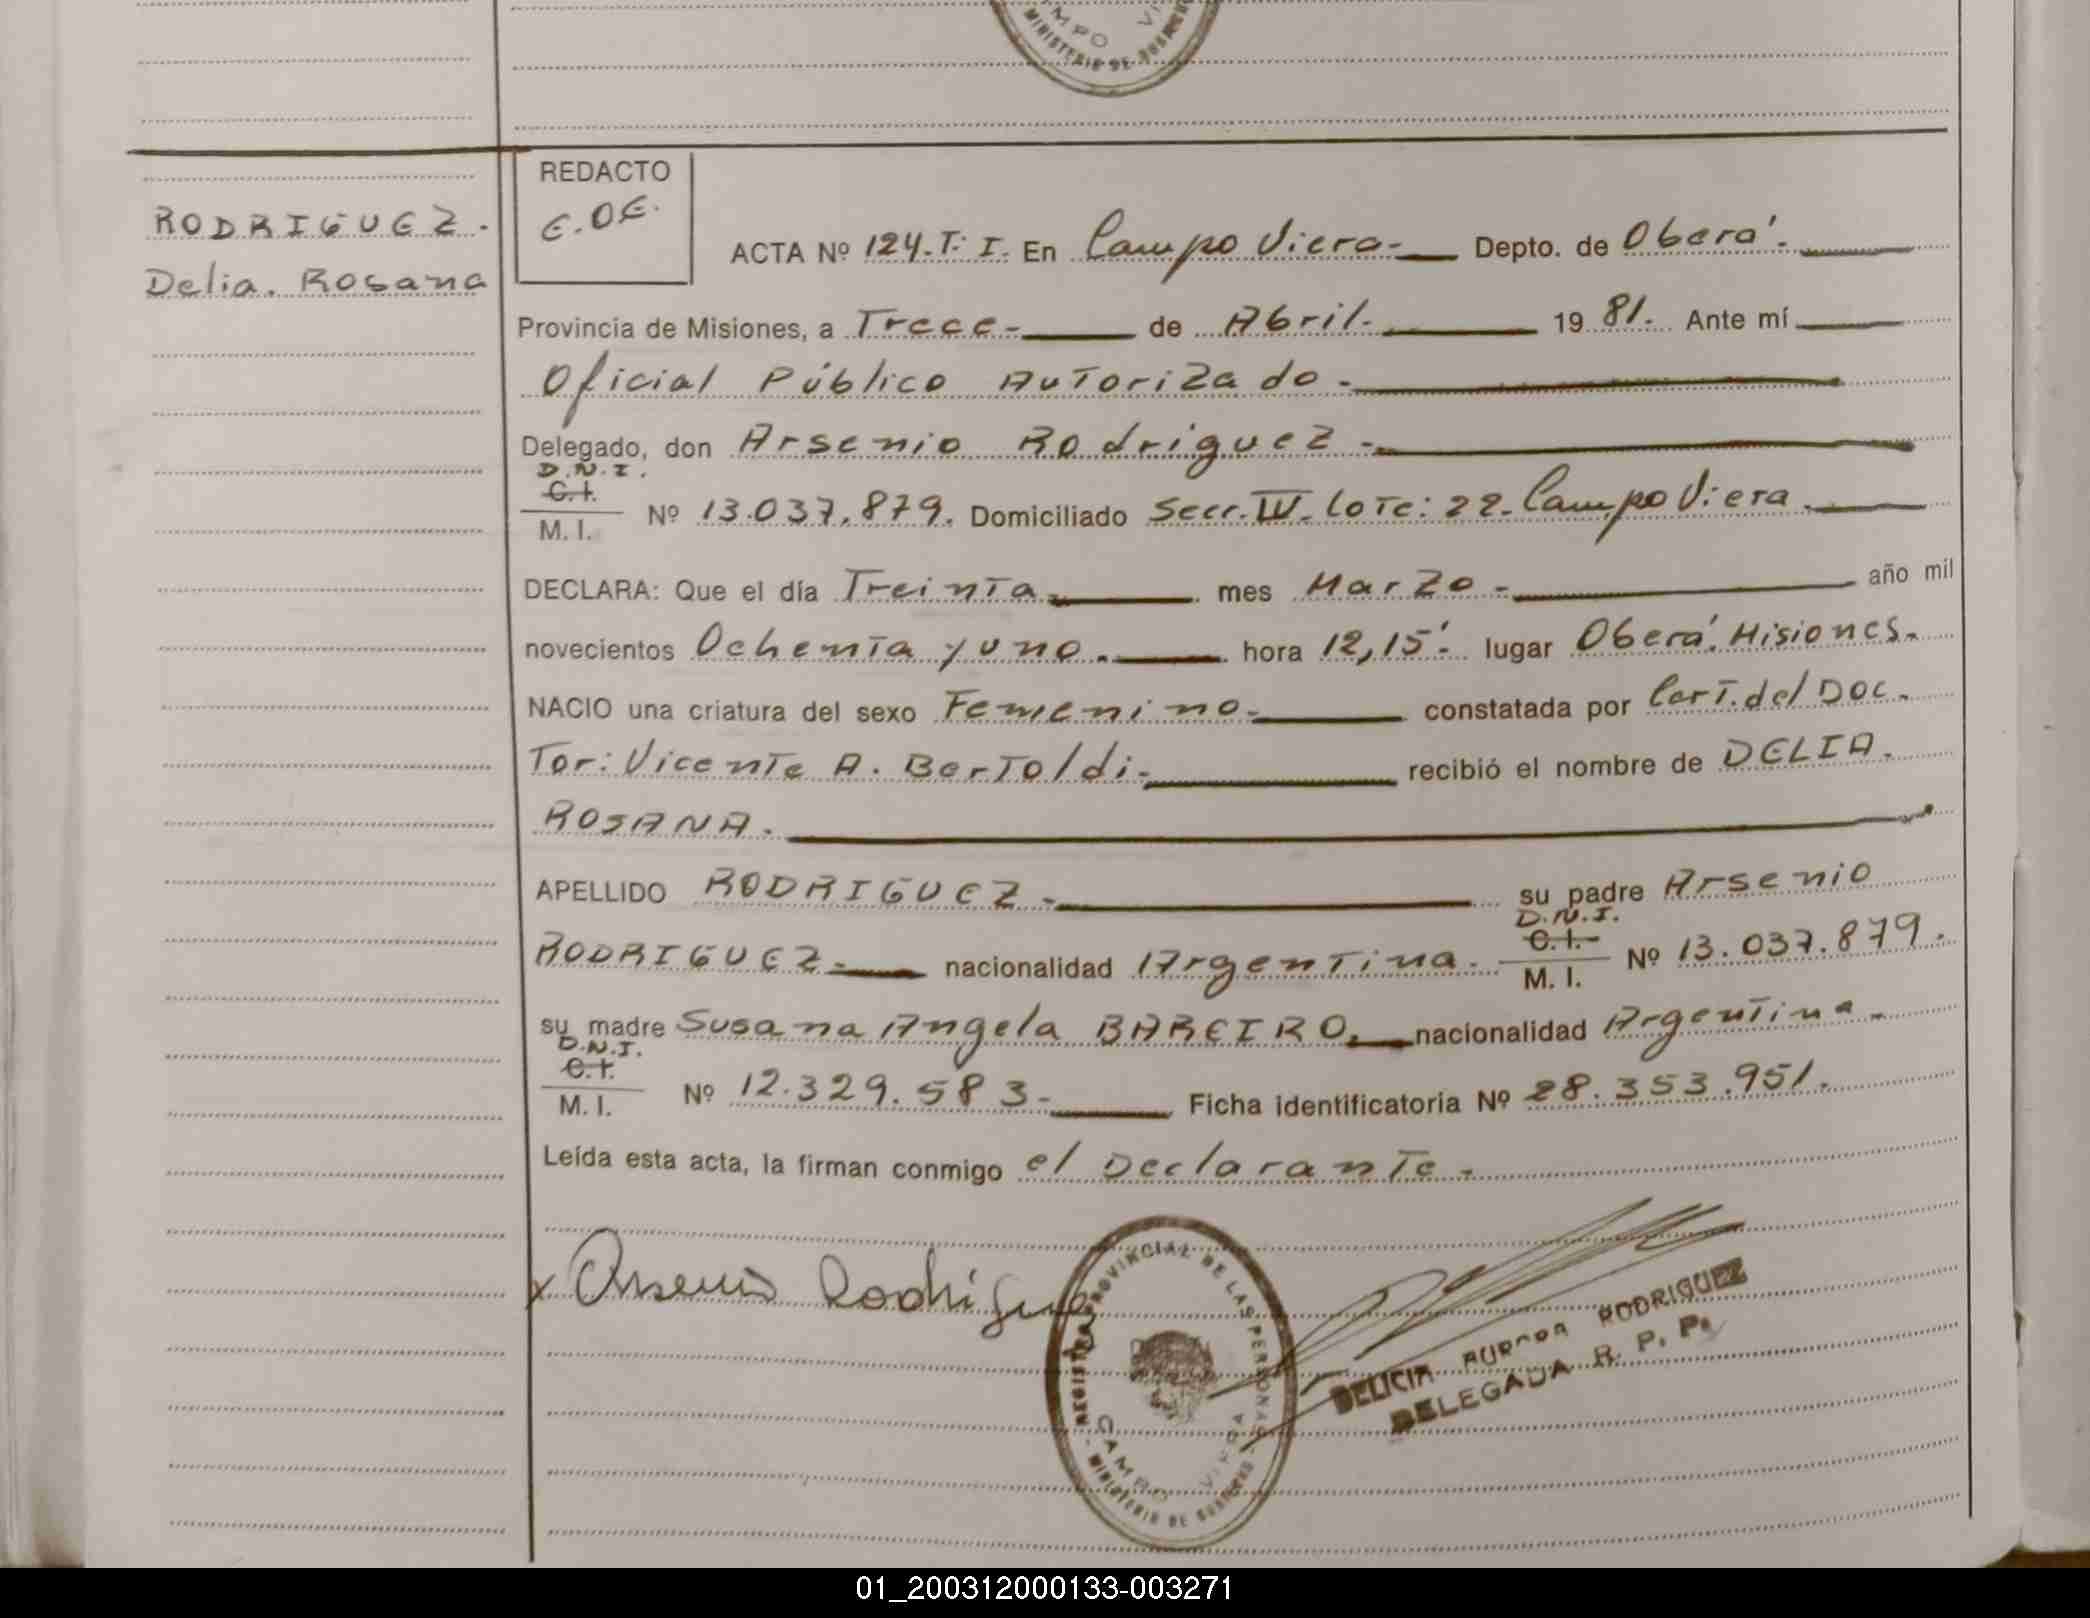 MPO VI
MINISTERIO DE
REDACTO
E.DE.
RODRIGUEZ.
Delia. Rosana
ACTA Nº 124.T: I. En Campo Viera- Depto. de Oberá.
Provincia de Misiones, a Trece- de Abril. 19 81. Ante mí
Oficial Público Autorizado-
Delegado, don Arsenio Rodriguez-
D.N.I.
C.I.
M. I.
Nº 13.037.879. Domiciliado Secc. IV. Lote: 22- Campo Viera.
DECLARA: Que el día Treinta mes Marzo- año mil
novecientos Ochenta y uno. hora 12,15'. lugar Oberá. Misiones.
NACIO una criatura del sexo Femenino- constatada por Cert. del Doc-
Tor: Vicente A. Bertoldi- recibió el nombre de DELIA.
ROSANA.
APELLIDO RODRIGUEZ- su padre Arsenio
D.N.I.
C.I.
M. I.
RODRIGUEZ- nacionalidad Argentina. Nº 13.037.879.
su madre Susana Angela BAREIRO. nacionalidad Argentina-
D.N.I.
C.I.
M. I.
Nº 12.329.583- Ficha identificatoria Nº 28.353.951.
Leída esta acta, la firman conmigo el Declarante-
x Arsenio Rodrigue
REGISTRO PROVINCIAL DE LAS PERSONAS
CAMPO VIERA
MINISTERIO DE
DELICIA AURORA RODRIGUEZ
DELEGADA R. P. P.
01_200312000133-003271